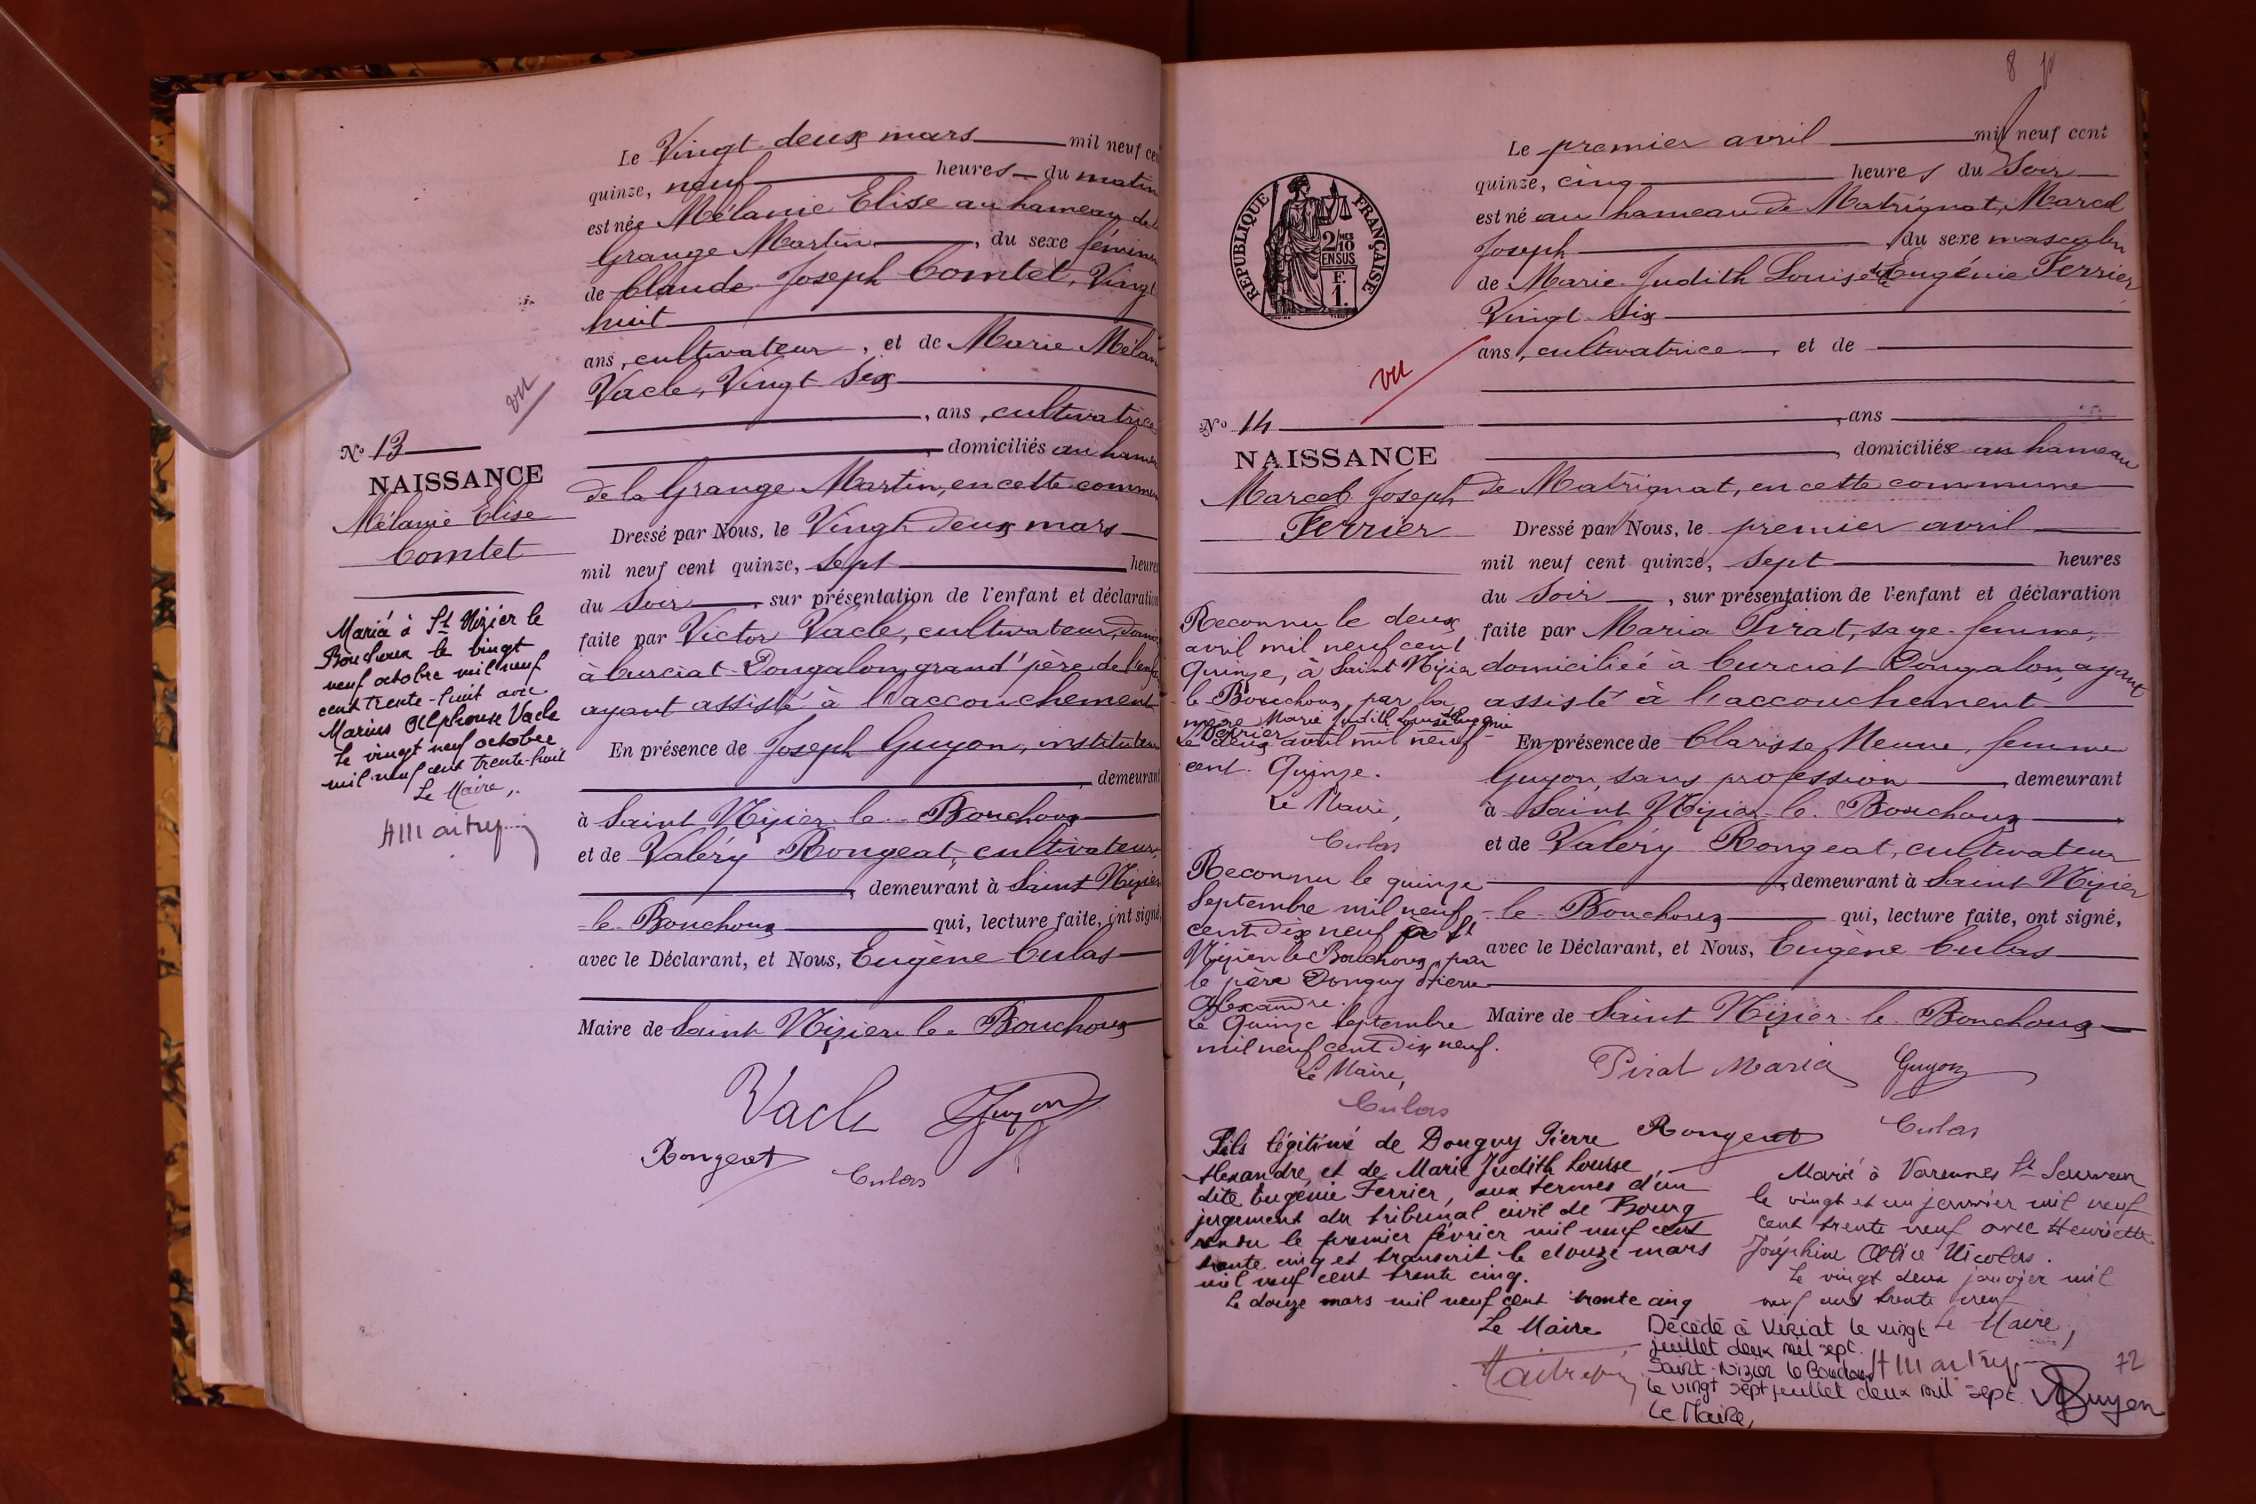 Le Vingt deux mars mil neuf cen
quinze, neuf heures du matin
est née Mélanie Elise au hameau de la
Grange Martin, du sexe féminin
de Claude Joseph Comtet, Vingt
huit
ans, cultivateur, et de Marie Mélan
Vacle, Vingt Six
, ans, cultivatrice
, domiciliés au hameau
de la Grange Martin, en cette commun
Dressé par Nous, le Vingt deux mars
mil neuf cent quinze, Sept heures
du Soir, sur présentation de l'enfant et déclaration
faite par Victor Vacle, cultivateur, domic
à Curciat Dongalon, grand'père de l'enfa
ayant assisté à l'accouchement
En présence de Joseph Guyon, instituteur
, demeurant
à Saint Nizier le Bouchoux
et de Valéry Rongeat, cultivateur,
, demeurant à Saint Nizier
le Bouchoux qui, lecture faite, ont signé,
avec le Déclarant, et Nous, Eugène Culas
Maire de Saint Nizier le Bouchoux
Vacle Guyon
Rongeat Culas
vu
No 13
NAISSANCE
Mélanie Elise
Comtet
Mariée à St Nizier le
Bouchoux le vingt
neuf octobre mil neuf
cent trente-huit avec
Marius Alphonse Vacle
Le vingt neuf octobre
mil neuf cent trente-huit
Le Maire,
8
Le premier avril mil neuf cent
quinze, cinq heures du Soir
est né au hameau de Matrignat, Marcel
Joseph, du sexe masculin
de Marie Judith Louise dite Eugénie Ferrier
Vingt Six
ans, cultivatrice, et de
, ans
, domiciliée au hameau
de Matrignat, en cette commune
Dressé par Nous, le premier avril
mil neuf cent quinze, Sept heures
du Soir, sur présentation de l'enfant et déclaration
faite par Maria Pirat, sage-femme,
domiciliée à Curciat Dongalon, ayant
assisté à l'accouchement
En présence de Clarisse Meune, femme
Guyon, sans profession, demeurant
à Saint Nizier le Bouchoux
et de Valéry Rongeat, cultivateur
, demeurant à Saint Nizier
le Bouchoux qui, lecture faite, ont signé,
avec le Déclarant, et Nous, Eugène Culas
Maire de Saint Nizier le Bouchoux
Pirat Maria Guyon
Rongeat Culas
REPUBLIQUE FRANÇAISE
2/10
EN SUS
F.
1.
vu
No 14
NAISSANCE
Marcel Joseph
Ferrier
Reconnu le deux
avril mil neuf cent
Quinze, à Saint Nizier
le Bouchoux par la
mère Marie Judith Louise dite Eugénie
Ferrier
Le deux avril mil neuf
cent Quinze.
Le Maire,
Culas
Reconnu le quinze
Septembre mil neuf
cent dix neuf à St
Nizier le Bouchoux, par
le père Donguy Pierre
Alexandre.
Le Quinze Septembre
mil neuf cent Dix neuf.
Le Maire,
Culas
Fils légitimé de Donguy Pierre
Alexandre, et de Marie Judith Louise,
dite Eugénie Ferrier, aux termes d'un
jugement du tribunal civil de Bourg
rendu le premier février mil neuf cent
trente cinq et transcrit le douze mars
mil neuf cent trente cinq.
Le douze mars mil neuf cent trente cinq
Le Maire
Marié à Varennes St Sauveur
le vingt et un janvier mil neuf
cent trente neuf avec Henriette
Joséphine Alice Nicolas.
Le vingt deux janvier mil
neuf cent trente neuf
Le Maire,
Décédé à Viriat le vingt
juillet deux mil sept.
Saint-Nizier le Bouchoux
le vingt sept juillet deux mil sept.
Le Maire,
72